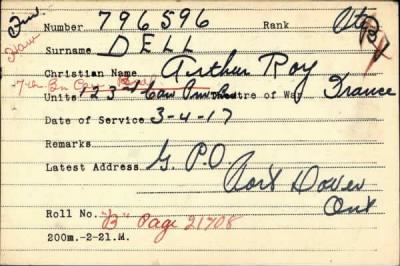 Number 796596 Rank Pte
Surname DELL
Christian Name Arthur Roy
7th Bn Can
Units 123rd Can Theatre of War France
Date of Service 3-4-17
Remarks
Latest Address G. P.O
Port Dover
Ont
Roll No. "B" Page 21708
200m.-2-21.M.